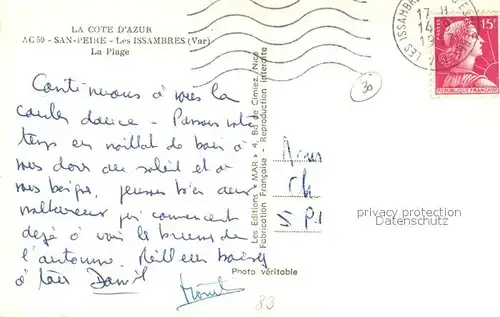 LA COTE D'AZUR
AC 59 - SAN-PEIRE - Les ISSAMBRES (Var)
La Plage
Continuons à vous la
couler douce - Passons notre
temps en maillot de bain à
nous dorer au soleil et à
nous baigner, pensons bien aux
malheureux qui commencent
déjà à voir les brumes de
l'automne. Meilleurs baisers
à tous
Photo véritable
Les Editions "MAR" 4, Bd de Cimiez, Nice
Fabrication Française - Reproduction interdite
30
LES ISSAMBRES
17 H
14
19
15F
REPUBLIQUE FRANCAISE
privacy protection
AnkAnkAnk.com
83